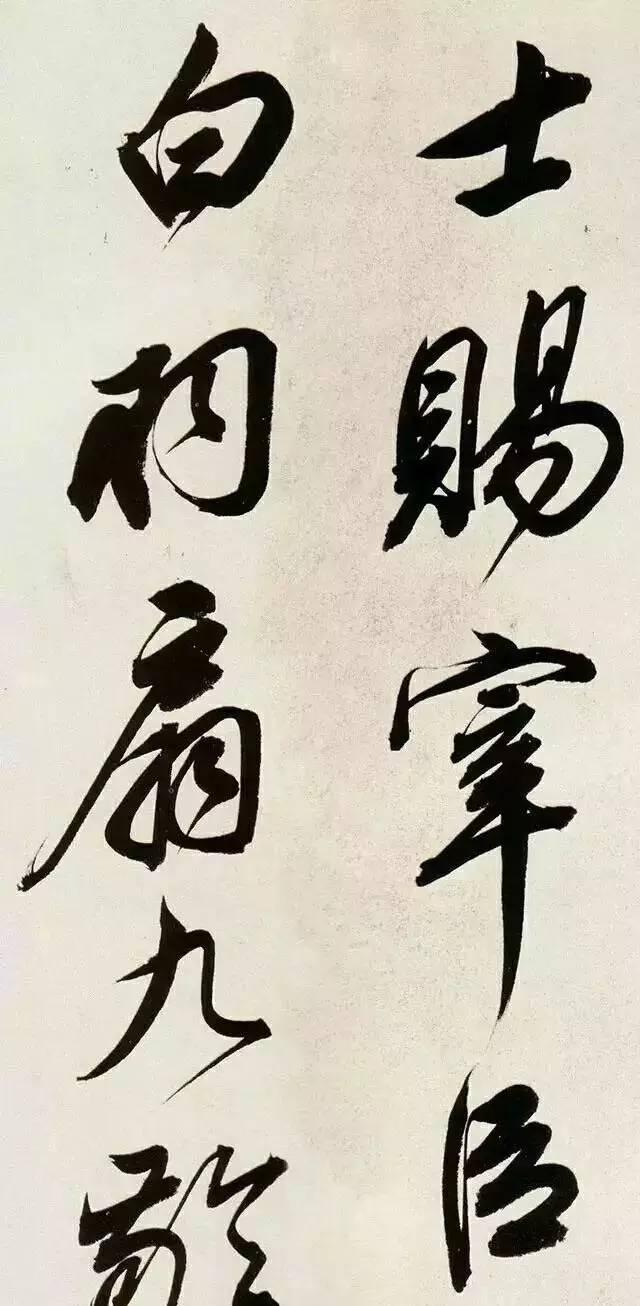 士賜宰臣
白羽扇九齡